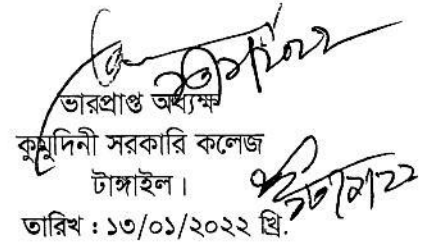 ভারপ্রাপ্ত অধ্যক্ষ
কুমুদিনী সরকারি কলেজ
টাঙ্গাইল।
তারিখ : ১৩/০১/২০২২ খ্রি.